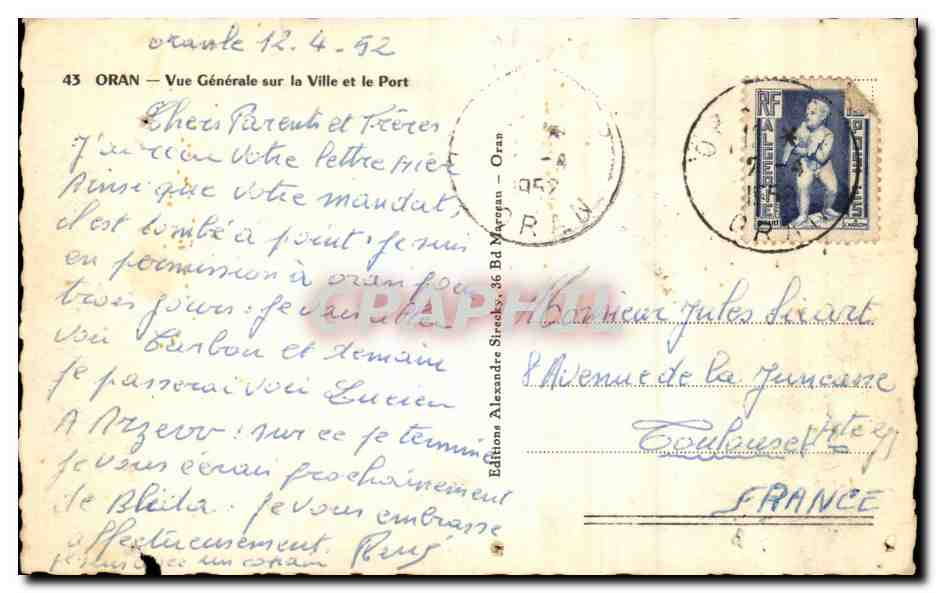 Oran le 12-4-52
43 ORAN — Vue Générale sur la Ville et le Port
Chers Parents et Frères
J'ai reçu votre lettre hier
Ainsi que votre mandat,
il est tombé à point. je suis
en permission à oran pour
trois jours. je vais aller
voir Turbon et demain
je passerai voir Lucien
A Arzew. sur ce je termine
je vous écrirai prochainement
de Blida. je vous embrasse
affectueusement. René
je suis avec un copain
Editions Alexandre Sirecky, 36 Bd Marceau - Oran
1952
ORAN
RF
ALGERIE
POSTES
ORAN
CPAPHIL
Monsieur Jules Sicart
8 Avenue de la Juncasse
Toulouse Hte G
FRANCE